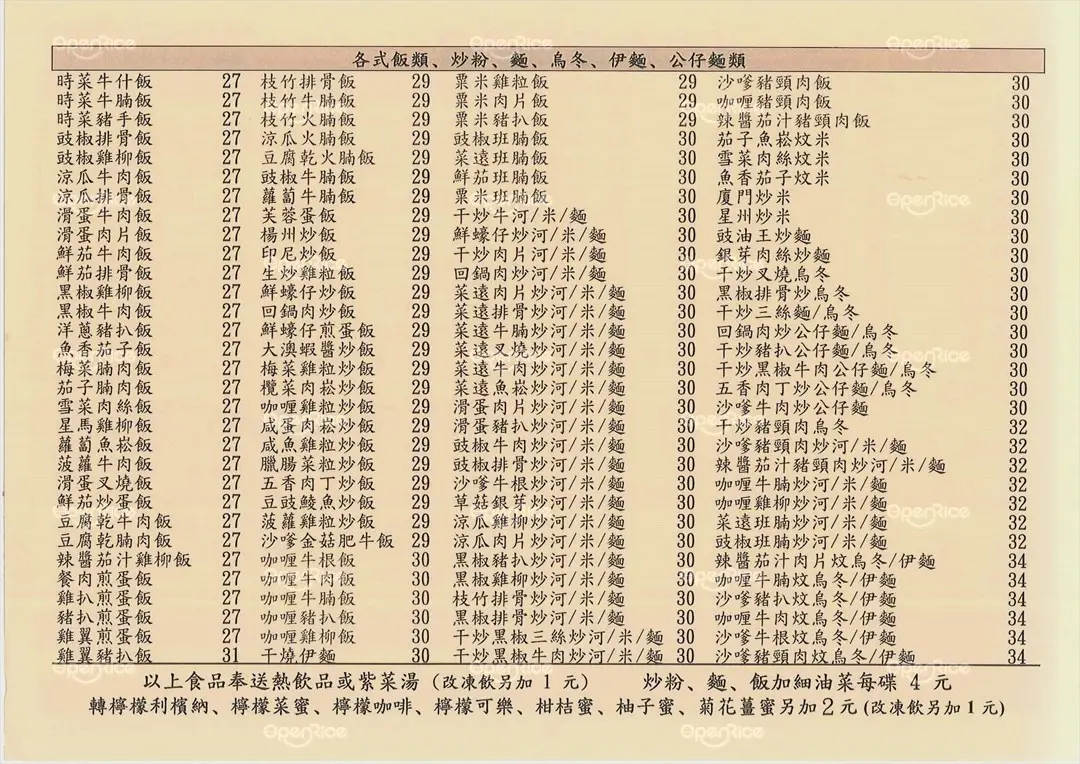 各式飯類、炒粉、麵、烏冬、伊麵、公仔麵類
時菜牛什飯 27
時菜牛腩飯 27
時菜豬手飯 27
豉椒排骨飯 27
豉椒雞柳飯 27
涼瓜牛肉飯 27
涼瓜排骨飯 27
滑蛋牛肉飯 27
滑蛋肉片飯 27
鮮茄牛肉飯 27
鮮茄排骨飯 27
黑椒雞柳飯 27
黑椒牛肉飯 27
洋蔥豬扒飯 27
魚香茄子飯 27
梅菜腩肉飯 27
茄子腩肉飯 27
雪菜肉絲飯 27
星馬雞柳飯 27
蘿蔔魚崧飯 27
菠蘿牛肉飯 27
滑蛋叉燒飯 27
鮮茄炒蛋飯 27
豆腐乾牛肉飯 27
豆腐乾腩肉飯 27
辣醬茄汁雞柳飯 27
餐肉煎蛋飯 27
雞扒煎蛋飯 27
豬扒煎蛋飯 27
雞翼煎蛋飯 27
雞翼豬扒飯 31
枝竹排骨飯 29
枝竹牛腩飯 29
枝竹火腩飯 29
涼瓜火腩飯 29
豆腐乾火腩飯 29
豉椒牛腩飯 29
蘿蔔牛腩飯 29
芙蓉蛋飯 29
楊州炒飯 29
印尼炒飯 29
生炒雞粒飯 29
鮮蠔仔炒飯 29
回鍋肉炒飯 29
鮮蠔仔煎蛋飯 29
大澳蝦醬炒飯 29
梅菜雞粒炒飯 29
欖菜肉崧炒飯 29
咖喱雞粒炒飯 29
咸蛋肉崧炒飯 29
咸魚雞粒炒飯 29
臘腸菜粒炒飯 29
五香肉丁炒飯 29
豆豉鯪魚炒飯 29
菠蘿雞粒炒飯 29
沙嗲金菇肥牛飯 29
咖喱牛根飯 30
咖喱牛肉飯 30
咖喱牛腩飯 30
咖喱豬扒飯 30
咖喱雞柳飯 30
干燒伊麵 30
粟米雞粒飯 29
粟米肉片飯 29
粟米豬扒飯 29
豉椒班腩飯 30
菜遠班腩飯 30
鮮茄班腩飯 30
粟米班腩飯 30
干炒牛河/米/麵 30
鮮蠔仔炒河/米/麵 30
干炒肉片河/米/麵 30
回鍋肉炒河/米/麵 30
菜遠肉片炒河/米/麵 30
菜遠排骨炒河/米/麵 30
菜遠牛腩炒河/米/麵 30
菜遠叉燒炒河/米/麵 30
菜遠牛肉炒河/米/麵 30
菜遠魚崧炒河/米/麵 30
滑蛋肉片炒河/米/麵 30
滑蛋豬扒炒河/米/麵 30
豉椒牛肉炒河/米/麵 30
豉椒排骨炒河/米/麵 30
沙嗲牛根炒河/米/麵 30
草菇銀芽炒河/米/麵 30
涼瓜雞柳炒河/米/麵 30
涼瓜肉片炒河/米/麵 30
黑椒豬扒炒河/米/麵 30
黑椒雞柳炒河/米/麵 30
枝竹排骨炒河/米/麵 30
黑椒排骨炒河/米/麵 30
干炒黑椒三絲炒河/米/麵 30
干炒黑椒牛肉炒河/米/麵 30
沙嗲豬頸肉飯 30
咖喱豬頸肉飯 30
辣醬茄汁豬頸肉飯 30
茄子魚崧炆米 30
雪菜肉絲炆米 30
魚香茄子炆米 30
廈門炒米 30
星州炒米 30
豉油王炒麵 30
銀芽肉絲炒麵 30
干炒叉燒烏冬 30
黑椒排骨炒烏冬 30
干炒三絲麵/烏冬 30
回鍋肉炒公仔麵/烏冬 30
干炒豬扒公仔麵/烏冬 30
干炒黑椒牛肉公仔麵/烏冬 30
五香肉丁炒公仔麵/烏冬 30
沙嗲牛肉炒公仔麵 30
干炒豬頸肉烏冬 32
沙嗲豬頸肉炒河/米/麵 32
辣醬茄汁豬頸肉炒河/米/麵 32
咖喱牛腩炒河/米/麵 32
咖喱雞柳炒河/米/麵 32
菜遠班腩炒河/米/麵 32
豉椒班腩炒河/米/麵 32
辣醬茄汁肉片炆烏冬/伊麵 34
咖喱牛腩炆烏冬/伊麵 34
沙嗲豬扒炆烏冬/伊麵 34
咖喱牛肉炆烏冬/伊麵 34
沙嗲牛根炆烏冬/伊麵 34
沙嗲豬頸肉炆烏冬/伊麵 34
以上食品奉送熱飲品或紫菜湯 (改凍飲另加 1 元) 炒粉、麵、飯加細油菜每碟 4 元
轉檸檬利檳納、檸檬菜蜜、檸檬咖啡、檸檬可樂、柑桔蜜、柚子蜜、菊花薑蜜另加 2 元 (改凍飲另加 1 元)